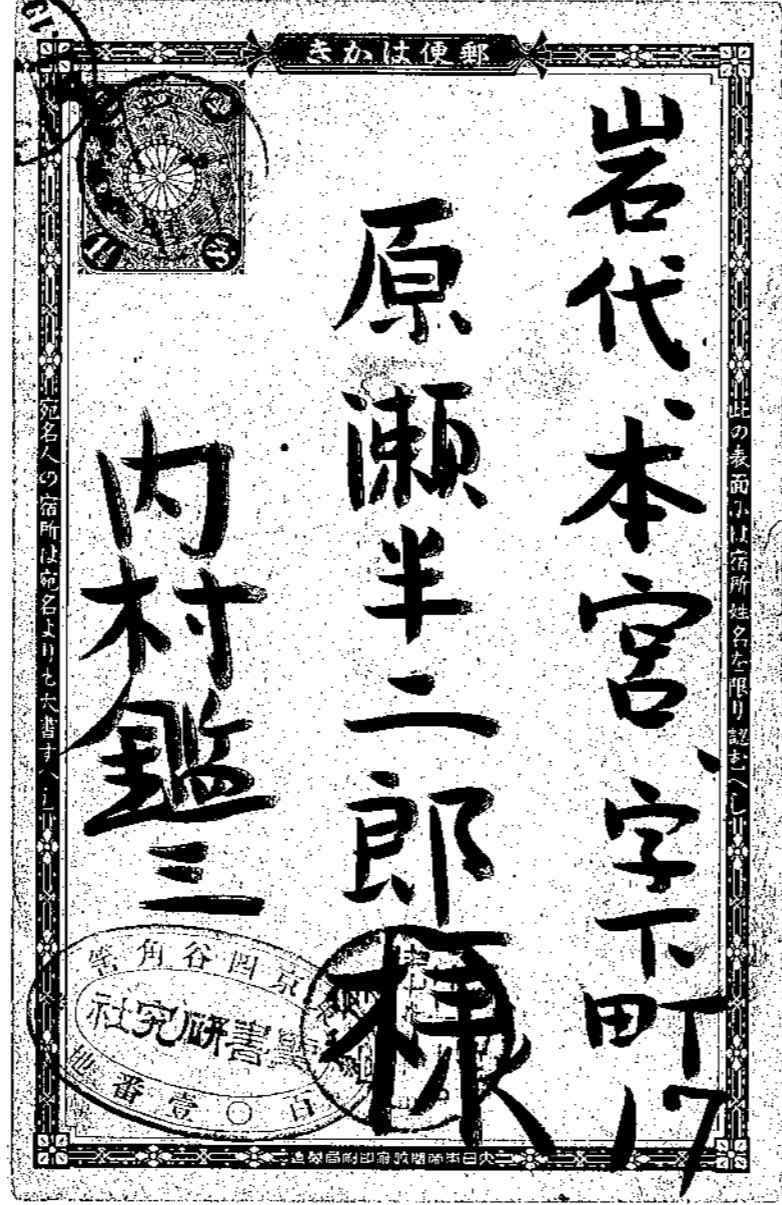 郵便はかき
此の表面には宿所姓名を限り認むへし
岩代、本宮、字下町17
原瀬半二郎様
内村鑑三
宛名人の宿所は宛名よりも大書すへからす
京四谷角筈
聖書研究社
百〇壹番地
大日本帝國政府印刷局製造